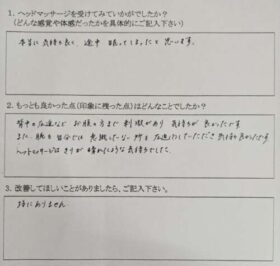 1. ヘッドマッサージを受けてみていかがでしたか？
（どんな感覚や体感だったかを具体的にご記入下さい）
本当に気持ち良く、途中眠ってしまったと思います。
2. もっとも良かった点（印象に残った点）はどんなことでしたか？
背中の圧迫など お腹の方まで 刺激があり 気持ちが良かったです
また、腕も自分では 意識していない 所を圧迫していただき 気持ち良かったです
ヘッドマッサージは きりが 晴れたような 気持ちでした。
3. 改善してほしいことがありましたら、ご記入下さい。
特にありません